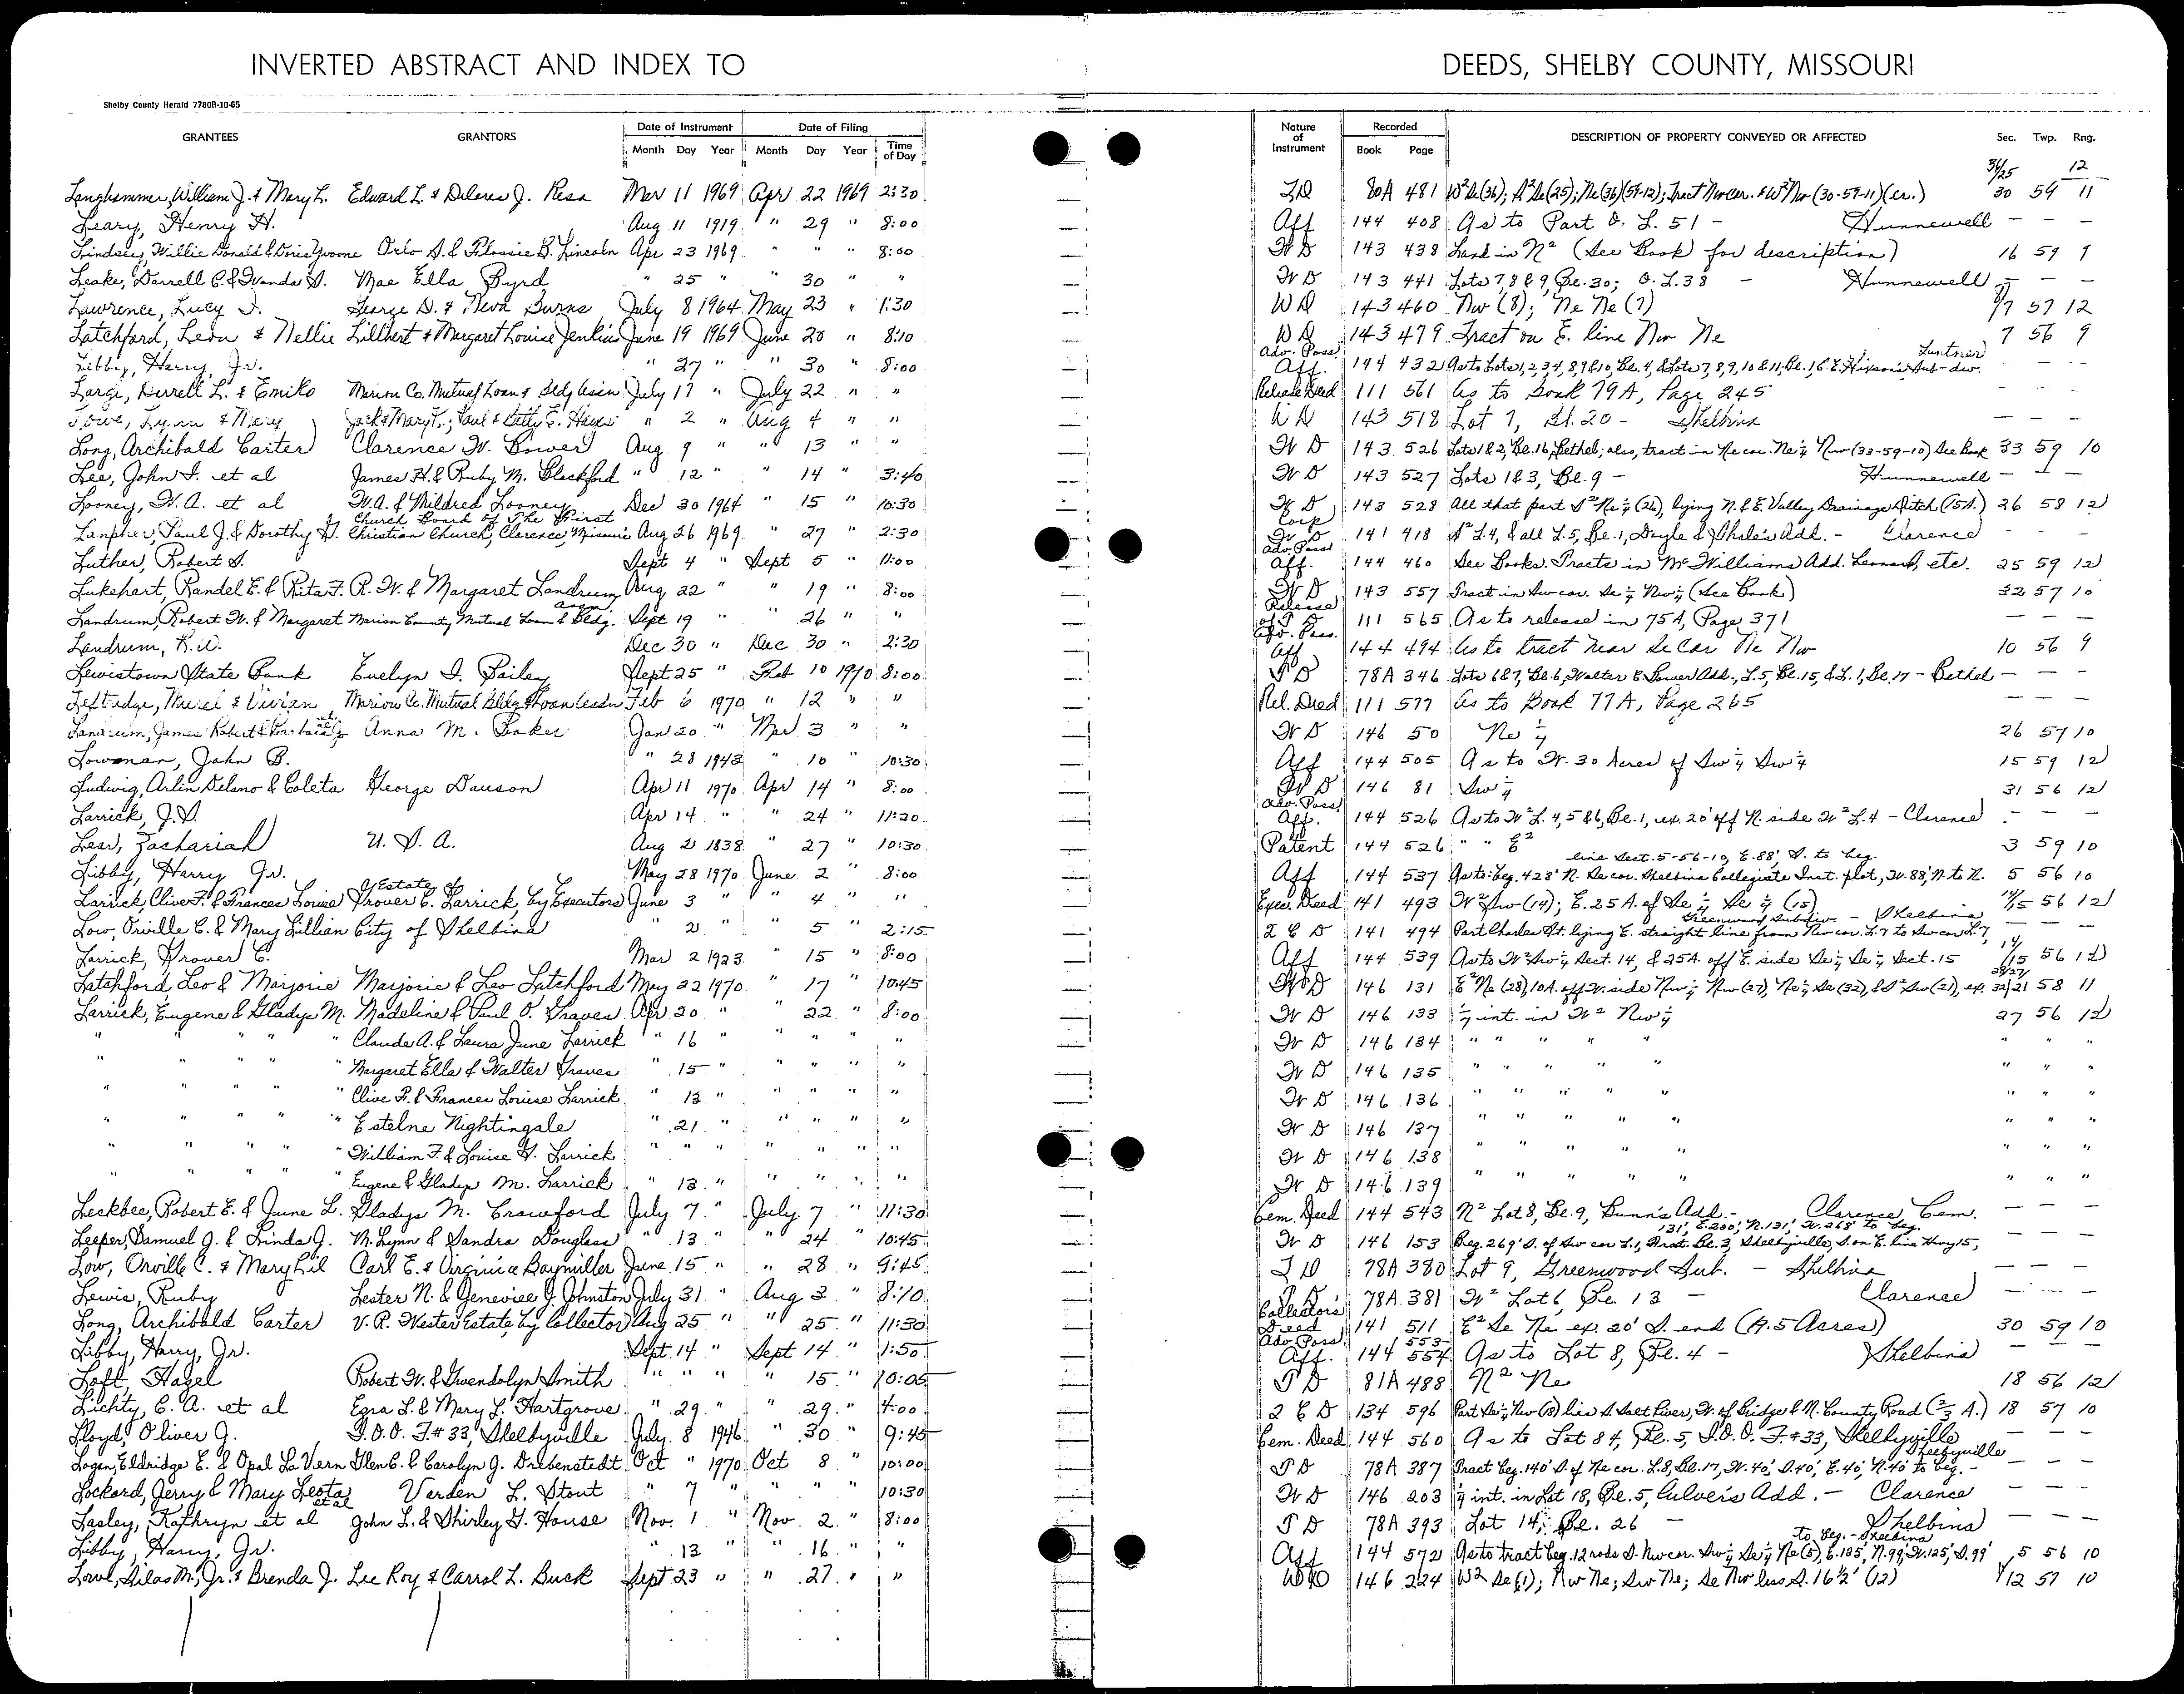 INVERTED ABSTRACT AND INDEX TO
DEEDS, SHELBY COUNTY, MISSOURI
Shelby County Herald 7780B-10-65
GRANTEES GRANTORS Date of Instrument Date of Filing Nature of Instrument Recorded DESCRIPTION OF PROPERTY CONVEYED OR AFFECTED Sec. Twp. Rng.
Month Day Year Month Day Year Time of Day Book Page
36/25 12
Langhammer, William J. & Mary L. Edward L. & Delores J. Resa Mar 11 1969 Apr 22 1969 2:30 T D 80A 481 W² Se (36); S² Se (25); Ne (36) (59-12); Tract Nw cor. & W² Nw (30-59-11) (er.) 30 59 11
Leary, Henry H. Aug 11 1919 " 29 " 8:00 Aff 144 408 As to Part O. L. 51 - Hunnewell — — —
Lindsey, Willie Donald & Doris Yvonne Orlo A. & Flossie B. Lincoln Apr 23 1969 " " " 8:00 W D 143 438 Land in N² (See Book for description) 16 59 9
Leake, Darrell C. & Wanda S. Mae Ella Byrd " 25 " " 30 " " W D 143 441 Lots 7, 8 & 9, Bl. 30; O. L. 38 - Hunnewell — — —
Lawrence, Lucy I. George D. & Neva Burns July 8 1964 May 23 " 1:30 W D 143 460 Nw (8); Ne Ne (7) 8/7 57 12
Latchford, Leon & Nellie Lilbert & Margaret Louise Jenkins June 19 1969 June 20 " 8:10 W D 143 479 Tract on E. line Nw Ne 7 56 9
Libby, Harry, Jr. " 27 " " 30 " 8:00 Adv. Poss. Aff. 144 432 As to Lots 1, 2, 3, 4, 8, 9 & 10, Bl. 4, & Lots 7, 8, 9, 10 & 11, Bl. 1, C. E. Hixson's Sub-div. Lentner — — —
Large, Durrell L. & Emiko Marion Co. Mutual Loan & Bldg Assn July 17 " July 22 " " Release Deed 111 561 As to Book 79A, Page 245 — — —
Lowe, Lynn & Mary Jack & Mary K.; Paul & Betty E. Hayes " 2 " Aug 4 " " W D 143 518 Lot 7, Bl. 20 - Shelbina — — —
Long, Archibald Carter Clarence W. Bower Aug 9 " " 13 " " W D 143 526 Lots 1 & 2, Bl. 16, Bethel; also, tract in Ne cor. Ne¼ Nw (33-59-10) See Book 33 59 10
Lee, John I. et al James H. & Ruby M. Blackford " 12 " " 14 " 3:40 W D 143 527 Lots 1 & 3, Bl. 9 - Hunnewell — — —
Looney, W. A. et al W. A. & Mildred Looney Dec 30 1964 " 15 " 10:30 W D 143 528 All that part S² Ne¼ (26), lying N. & E. Valley Drainage Ditch (15 A.) 26 58 12
Lanpher, Paul J. & Dorothy G. Church Board of The First Christian Church, Clarence, Missouri Aug 26 1969 " 27 " 2:30 Corp W D 141 418 S² L. 4, & all L. 5, Bl. 1, Doyle & Shale's Add. - Clarence — — —
Luther, Robert S. Sept 4 " Sept 5 " 11:00 Adv. Poss Aff. 144 460 See Books. Tracts in McWilliams Add. Leonard, etc. 25 59 12
Lukehart, Randel E. & Rita F. R. W. & Margaret Landrum Aug 22 " " 19 " 8:00 W D 143 557 Tract in Sw cor. Se¼ Nw¼ (See Book) 32 57 10
Landrum, Robert W. & Margaret Marion County Mutual Loan & Bldg. Assn. Sept 19 " " 26 " " Release of T D 111 565 As to release in 75A, Page 371 — — —
Landrum, R. W. Dec 30 " Dec 30 " 2:30 Adv. Poss. Aff 144 494 As to tract near Se Cor Ne Nw 10 56 9
Lewistown State Bank Evelyn I. Bailey Sept 25 " Feb 10 1970 8:00 T D 78A 346 Lots 6 & 7, Bl. 6, Walter C. Bower Add., L. 5, Bl. 15, & L. 1, Bl. 17 - Bethel — — —
Leftridge, Murel & Vivian Marion Co. Mutual Bldg & Loan Assn Feb 6 1970 " 12 " " Rel. Deed 111 577 As to Book 77A, Page 265 — — —
Landrum, James Robert & Barbara et al Anna M. Baker Jan 20 " Mar 3 " " W D 146 50 Ne¼ 26 57 10
Lowman, John B. " 28 1943 " 10 " 10:30 Aff 144 505 As to W. 30 Acres of Sw¼ Sw¼ 15 59 12
Ludwig, Arlin Delano & Coleta George Dawson Apr 11 1970 Apr 14 " 8:00 W D 146 81 Sw¼ 31 56 12
Larrick, J. D. Apr 14 " " 24 " 11:20 Adv. Poss. Aff. 144 526 As to W² L. 4, 5 & 6, Bl. 1, ex. 20' off N. side W² L. 4 - Clarence — — —
Lear, Zachariah U. S. A. Aug 21 1838 " 27 " 10:30 Patent 144 526 " " E² 3 59 10
Libby, Harry Jr. May 28 1970 June 2 " 8:00 Aff 144 537 As to: beg. 428' N. Se cor. Shelbina Collegiate Inst. plot, W. 88', N. to N. line Sect. 5-56-10, E. 88', S. to beg. 5 56 10
Larrick Clive F. & Frances Louise Estate of Grover C. Larrick, by Executors June 3 " " 4 " " Exec. Deed 141 493 W² Sw (14); E. 25 A. of Se¼ Se¼ (15) 14/15 56 12
Low, Orville C. & Mary Lillian City of Shelbina " 2 " " 5 " 2:15 2 C D 141 494 Part Charles St. lying E. straight line from Nw cor. L. 7 to Sw cor L. 7, Greenwood Subdiv. - Shelbina — — —
Larrick, Grover C. Mar 2 1923 " 15 " 8:00 Aff 144 539 As to W² Sw¼ Sect. 14, & 25A. off E. side Se¼ Se¼ Sect. 15 14/15 56 12
Latchford, Leo & Marjorie Marjorie & Leo Latchford May 22 1970 " 17 " 10:45 W D 146 131 E² Ne (28), 10A. off W. side Nw¼ Nw (27), Ne¼ Se (32), & S² Sw (21), ex. 28/27/32/21 58 11
Larrick, Eugene & Gladys M. Madeline & Paul O. Graves Apr 20 " " 22 " 8:00 W D 146 133 ¼ int. in W² Nw¼ 27 56 12
" " " " Claude A. & Laura June Larrick " 16 " " " " " W D 146 134 " " " " " " " "
" " " " Margaret Ella & Walter Graves " 15 " " " " " W D 146 135 " " " " " " " "
" " " " Clive F. & Frances Louise Larrick " 13 " " " " " W D 146 136 " " " " " " " "
" " " " Estelne Nightingale " 21 " " " " " W D 146 137 " " " " " " " "
" " " " William F. & Louise G. Larrick " " " " " " " W D 146 138 " " " " " " " "
" " " " Eugene & Gladys M. Larrick " 13 " " " " " W D 146 139 " " " " " " " "
Leckbee, Robert E. & June L. Gladys M. Crawford July 7 " July 7 " 11:30 Cem. Deed 144 543 N² Lot 8, Bl. 9, Bunn's Add. - Clarence Cem. — — —
Leeper, Samuel J. & Linda J. M. Lynn & Sandra Douglass " 13 " " 24 " 10:45 W D 146 153 Beg. 269' S. of Sw cor L. 1, Bl. 3, Shelbyville, S. on E. line Hwy 15, 131', E. 200', N. 131', W. 268' to beg. — — —
Low, Orville C. & Mary Lil Carl E. & Virginia Baymiller June 15 " " 28 " 9:45 T D 78A 380 Lot 9, Greenwood Sub. - Shelbina — — —
Lewis, Ruby Lester N. & Genevieve J. Johnston July 31 " Aug 3 " 8:10 T D 78A 381 W² Lot 6, Bl. 13 - Clarence — — —
Long, Archibald Carter V. R. Wester Estate, by Collector Aug. 25 " " 25 " 11:30 Collector's Deed 141 511 E² Se Ne ex. 20' S. end (19.5 Acres) 30 59 10
Libby, Harry, Jr. Sept. 14 " Sept. 14 " 1:50 Adv. Poss. Aff. 144 553-554 As to Lot 8, Bl. 4 - Shelbina — — —
Loft, Hazel Robert W. & Gwendolyn Smith " " " " 15 " 10:05 T D 81A 488 N² Ne 18 56 12
Lichty, C. A. et al Ezra L. & Mary L. Hartgrove " 29 " " 29 " 4:00 2 C D 134 596 Part Sw¼ Nw (18) lies S. Salt River, W. of Bridge & N. County Road (⅔ A.) 18 57 10
Lloyd, Oliver J. I. O. O. F. #33, Shelbyville July 8 1946 " 30 " 9:45 Cem. Deed 144 560 As to Lot 84, Bl. 5, I. O. O. F. #33, Shelbyville — — —
Logan, Eldridge E. & Opal La Vern Glen C. & Carolyn J. Drebenstedt Oct " 1970 Oct 8 " 10:00 T D 78A 387 Tract beg. 140' S. of Ne cor. L. 8, Bl. 17, W. 40', S. 40', E. 40', N. 40' to beg. - Shelbyville — — —
Lockard, Jerry & Mary Leota et al Verden L. Stout " 7 " " " " 10:30 W D 146 203 ¼ int. in Lot 18, Bl. 5, Culver's Add. - Clarence — — —
Lasley, Kathryn et al John L. & Shirley G. House Nov. 1 " Nov. 2 " 8:00 T D 78A 393 Lot 14, Bl. 26 - Shelbina — — —
Libby, Harry, Jr. " 13 " " 16 " " Aff 144 572 As to tract beg. 12 rods S. Nw cor. Sw¼ Se¼ Ne (5), E. 125', N. 99', W. 125', S. 99' to beg. - Shelbina 5 56 10
Lowl, Silas M., Jr. & Brenda J. Lee Roy & Carrol L. Buck Sept 23 " " 27 " " W D 146 224 W² Se (1); Nw Ne; Sw Ne; Se Nw less S. 16½' (12) 1/12 57 10